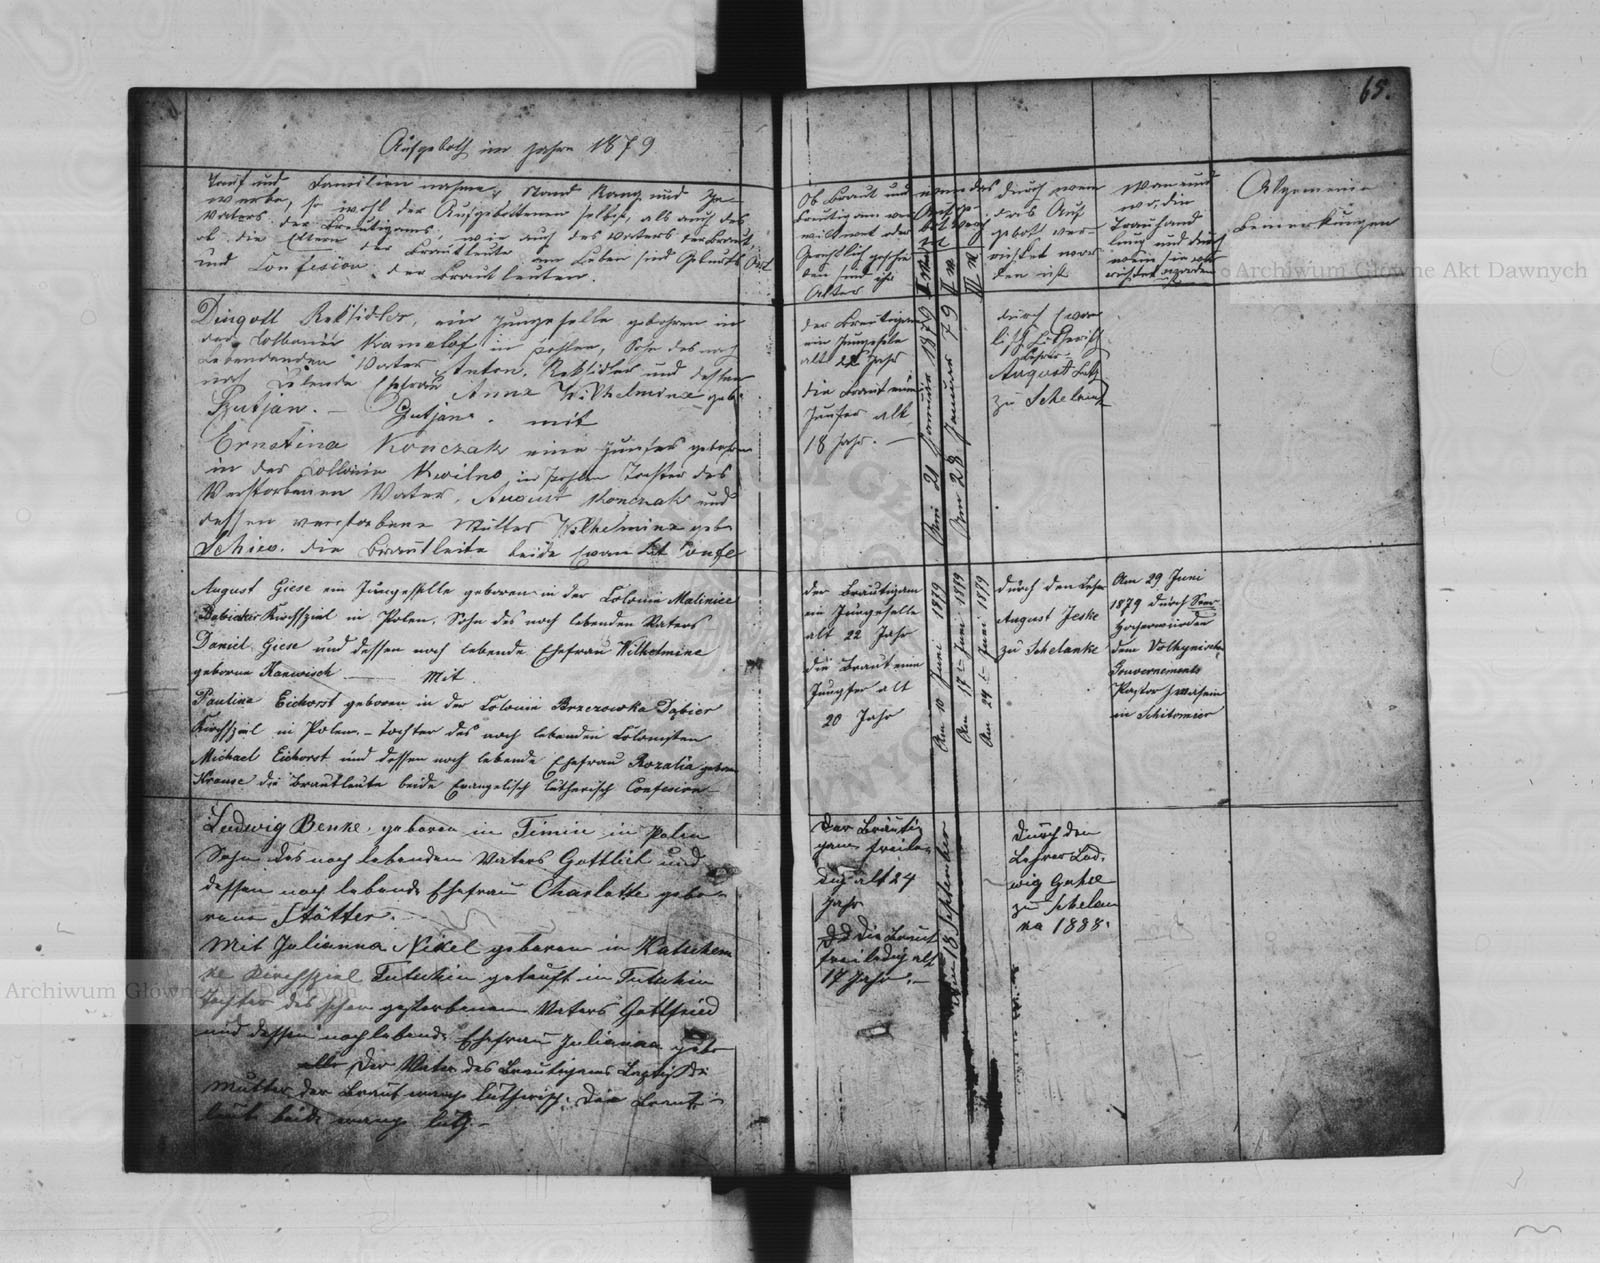 65.
Aufgeboth im Jahre 1879
Tauf und Familien nahme, Stand Rang und Ge-
werbe, so wohl der Aufgebottenen selbst, als auch des
Vaters der Breutigams, wie auch des Vaters der Braut,
ob die Eltern der Brautleute am Leben sind Geburts Ort
und Confesion der Brautleuten.
Ob Braut und
Breutigam ver
witwet oder
Gerichtlich geschie
den sind ihr
Alter
wenn das
Aufge-
bot
I
II
III
durch wem
das Auf
gebot ver-
richtet wor
den ist
Wan und
wo, die
Trauhand
lung und durch
wem sie ver
richtet worden
Algemeine
Bemerkungen
Dingott Reksidler, ein Jungeselle gebohren in
der Collonie Kamelof in Pohlen, Sohn des noch
Lebendenden Vater Anton Reksidler und dessen
noch Lebende Ehefrau Anna Wilhelmina geb.
Gutjan. mit
Ernstina Konczak eine Junfer gebohren
in der Collonie Kwilno in Pohlen Tochter des
Verstorbenen Vater August Konczak und
dessen verstorbene Mutter Wilhelmina geb
Schiew. die Brautleite beide Ewan Lut Confe
der Breutigam
ein Jungesele
alt 22 Jahr
die Braut eine
Junfer alt
18 Jahr.
Am 21 Januar 1879
Am 28 Januar 79
durch Ewan
lisch Lutherisch
Lehrer
August Lutz
zu Schelanz
August Giese ein Jungeselle geboren in der Colonie Malinice
Dąbicker Kirchspiel in Polen. Sohn des noch lebenden Vaters
Daniel Giese und dessen noch lebende Ehefrau Wilhelmine
geborne Karwisch Mit.
Paulina Eichorst geboren in der Colonie Brzezowka Dąbier
Kirchspiel in Polen. Tochter des noch lebenden Colonisten
Michael Eichorst und dessen noch lebende Ehefrau Rozalia geborn
Krause die Brautleute beide Evangelisch lutherisch Confesion
der Bräutigam
ein Jungeselle
alt 22 Jahr
die Braut eine
Jungfer alt
20 Jahr
Am 10 Juni 1879
Am 17 Juni 1879
Am 24 Juni 1879
durch den Lehrer
August Jeske
zu Schelanke
Am 29 Juni
1879 durch
Hocherwürden
dem Volhynischen
Gouvernements
Pastor
in Schitomier
Ludwig Benke, geboren in Timin in Polen
Sohn des noch lebenden Vaters Gottlieb und
dessen noch lebende Ehefrau Charlotte gebo-
rene Stötter.
Mit Julianna Nikel geboren in Hatschem
ke Kirchspiel Tutschin getauft in Tutschin
Tochter des schon gestorbenen Vaters Gottfried
und dessen noch lebende Ehefrau Julianna gebo
Der Vater des Breutigams Baptist Di
Mutter der Braut evang lutherisch. Die Braut
leute beide evang luth.
Der Bräuti
gam freile-
dig alt 24
Jahr
Die Braut
freiledig alt
17 Jahr.
Den 18 September
Durch den
Lehrer Lud.
wig
zu Schelan
ka 1888.
Archiwum Główne Akt Dawnych
Archiwum Główne Akt Dawnych